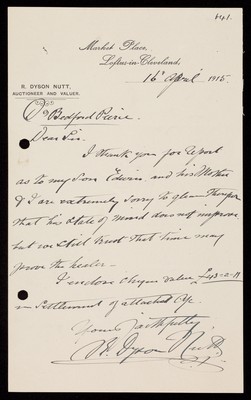 141.
Market Place,
Loftus-in-Cleveland,
16th April 1915.
R. DYSON NUTT,
AUCTIONEER AND VALUER.
Dr Bedford Pierce
Dear Sir.
I thank you for report
as to my Son Edwin and his Mother
& I are extremely sorry to glean therefrom
that his state of mind does not improve
but we still trust that time may
prove the healer.
I enclose cheque value £43-2-11
in settlement of attached a/c.
Yours faithfully
R. Dyson Nutt